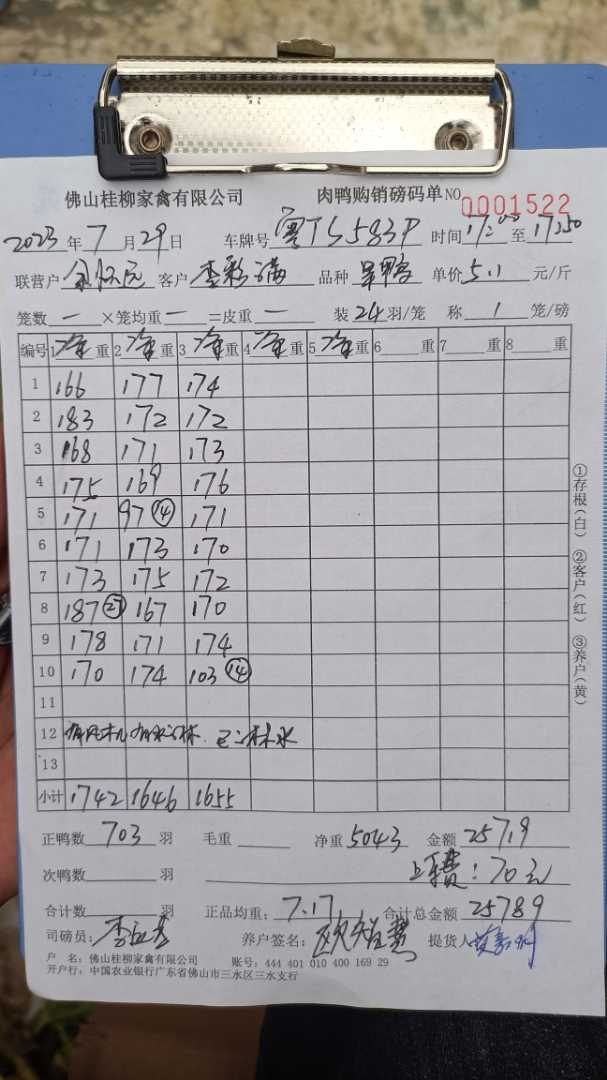 佛山桂柳家禽有限公司 肉鸭购销磅码单 NO 0001522
2023年7月29日 车牌号 粤TS583P 时间17:00至17:50
联营户 客户 李彩满 品种 旱鸭 单价5.1元/斤
笼数 一 ×笼均重 一 =皮重 一 装24羽/笼 称 1 笼/磅
编号 1净重 2净重 3净重 4净重 5净重 6 重 7 重 8 重
1 166 177 174
2 183 172 172
3 168 171 173
4 175 169 176
5 171 97⑭ 171
6 171 173 170
7 173 175 172
8 187㉕ 167 170
9 178 171 174
10 170 174 103⑭
11
12 有风机 有水淋. 已淋水
13
小计 1742 1646 1655
正鸭数 703 羽 毛重 净重 5043 金额 25719
次鸭数 羽 上车费:70元
合计数 羽 正品均重: 7.17 合计总金额 25789
司磅员: 养户签名: 提货人
户 名: 佛山桂柳家禽有限公司 账号: 444 401 010 400 169 29
开户行: 中国农业银行广东省佛山市三水区三水支行
①存根(白) ②客户(红) ③养户(黄)